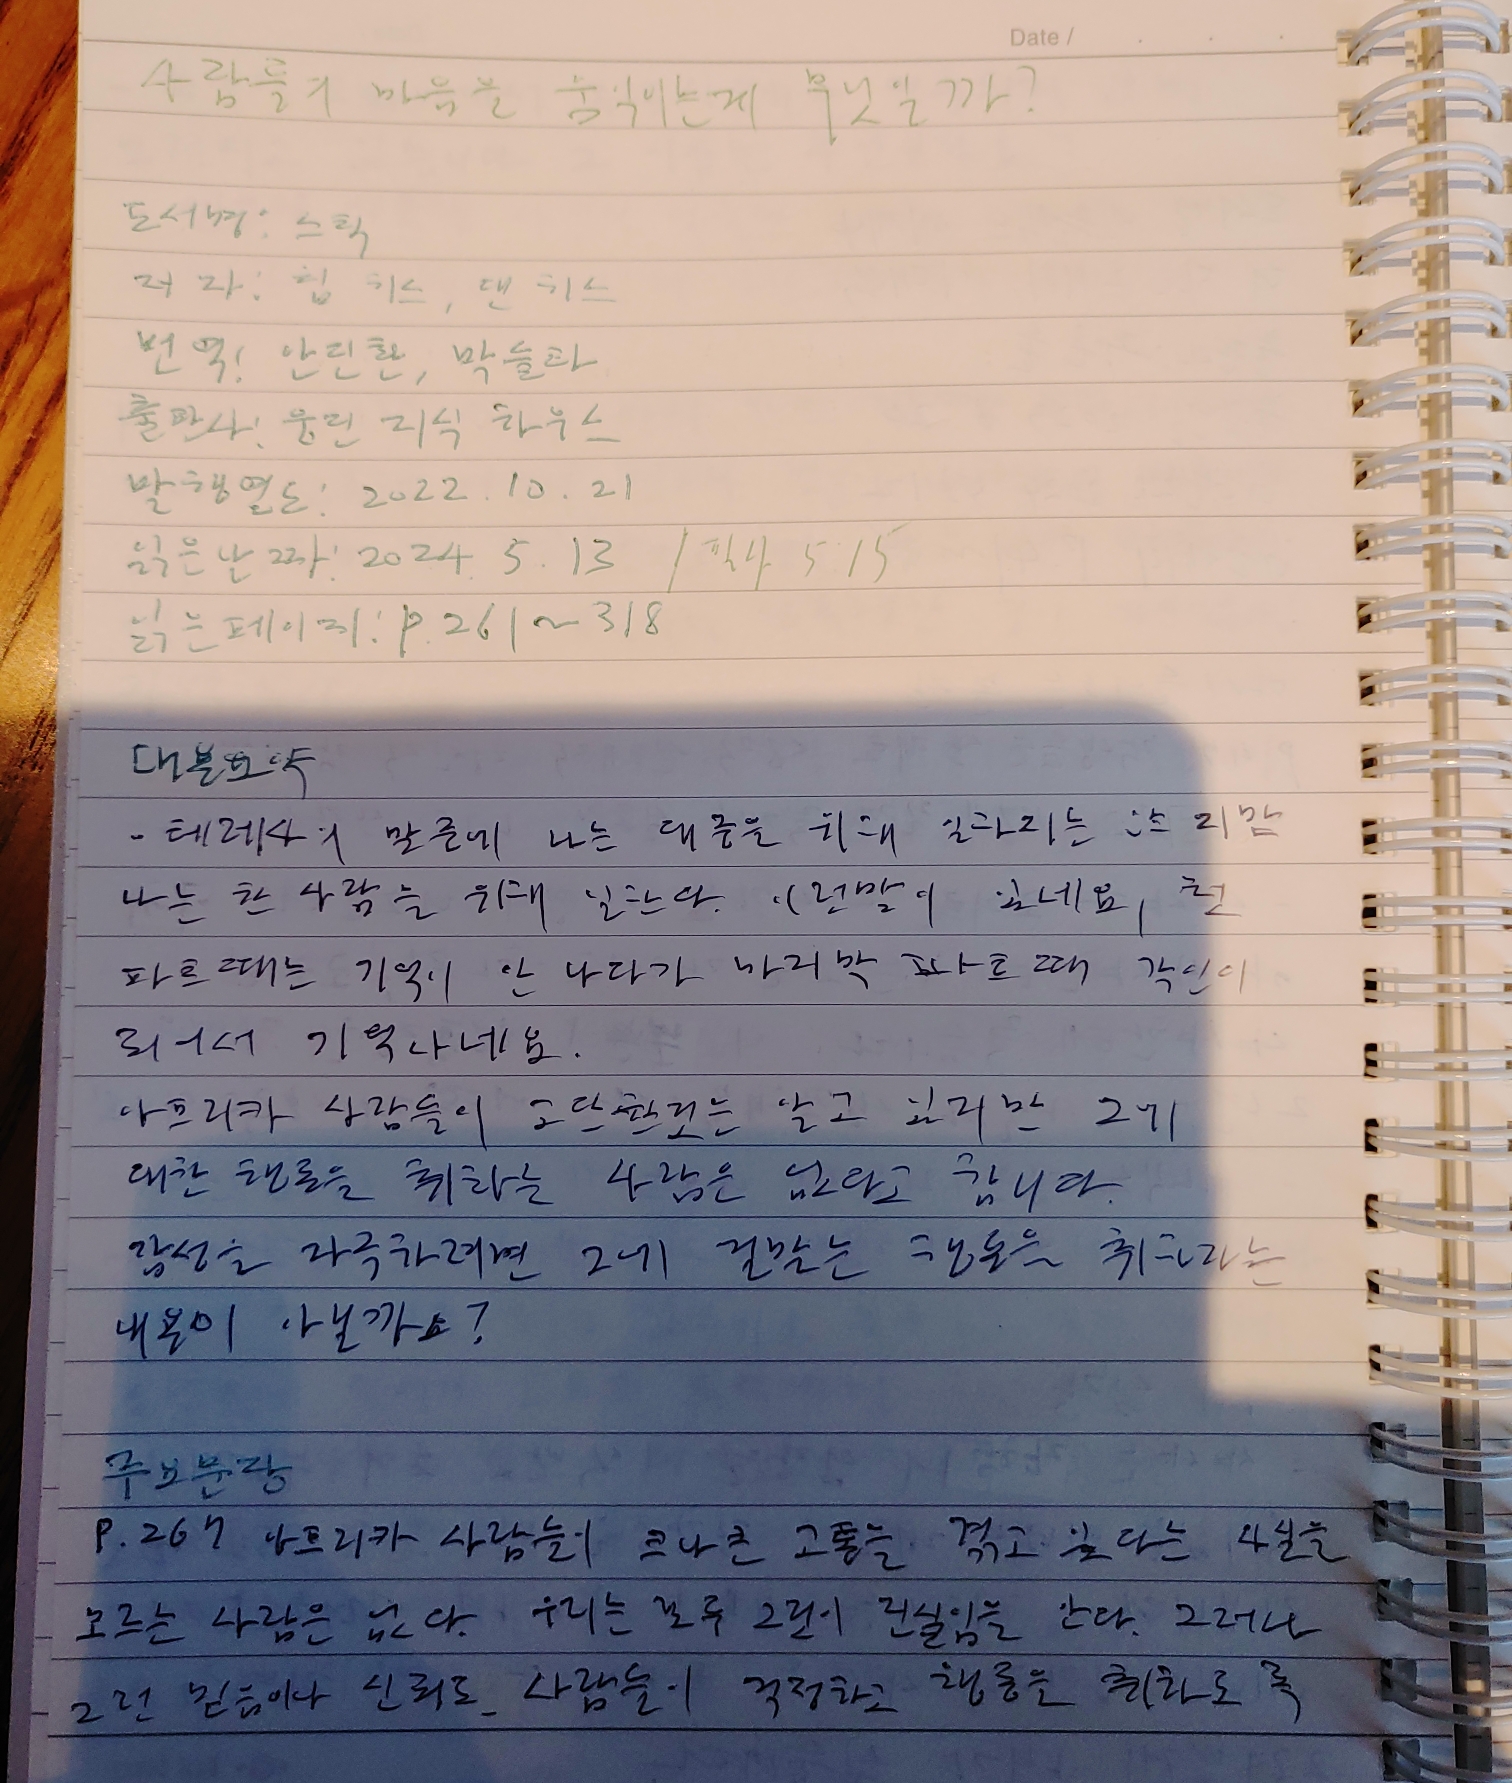 Date /
사람들의 마음을 움직이는게 무엇일까?
도서명: 스틱
저자: 칩 히스, 댄 히스
번역: 안진환, 박슬라
출판사: 웅진 지식 하우스
발행연도: 2022. 10. 21
읽은날짜: 2024. 5. 13 / 필사 5.15
읽은페이지: P. 261 ~ 318
내용요약
- 테레사의 말중에 나는 대중을 위해 일하지는 않지만
나는 한 사람을 위해 일한다. 이런말이 있네요, 전
파트때는 기억이 안 나다가 마지막 파트때 각인이
되어서 기억나네요.
아프리카 사람들이 고단한것는 알고 있지만 그에
대한 행동을 취하는 사람은 없다고 합니다.
감성을 자극하려면 그에 걸맞는 행동을 취하라는
내용이 아닐까요?
주요문장
P. 267 아프리카 사람들이 크나큰 고통을 겪고 있다는 사실을
모르는 사람은 없다. 우리는 모두 그것이 진실임을 안다. 그러나
그런 믿음이나 신뢰도 사람들이 걱정하고 행동을 취하도록